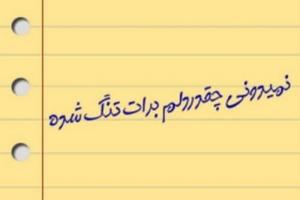 نمیدونی چقدر دلم برات تنگ شده